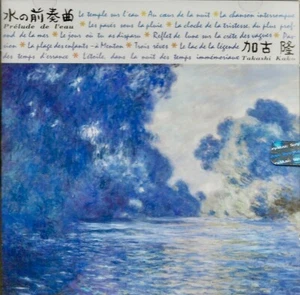 水の前奏曲
Prélude de l'eau
Le temple sur l'eau ＊ Au cœur de la nuit ＊ La chanson interrompue
＊ Les pavés sous la pluie ＊ La cloche de la tristesse, du plus prof
ond de la mer ＊ Le jour où tu as disparu ＊ Reflet de lune sur la crête des vagues ＊ Pas
sion ＊ La plage des enfants - à Menton ＊ Trois rêves ＊ Le lac de la légende
des temps d'errance ＊ L'étoile, dans la nuit des temps immémoriaux
加古 隆
Takashi Kako